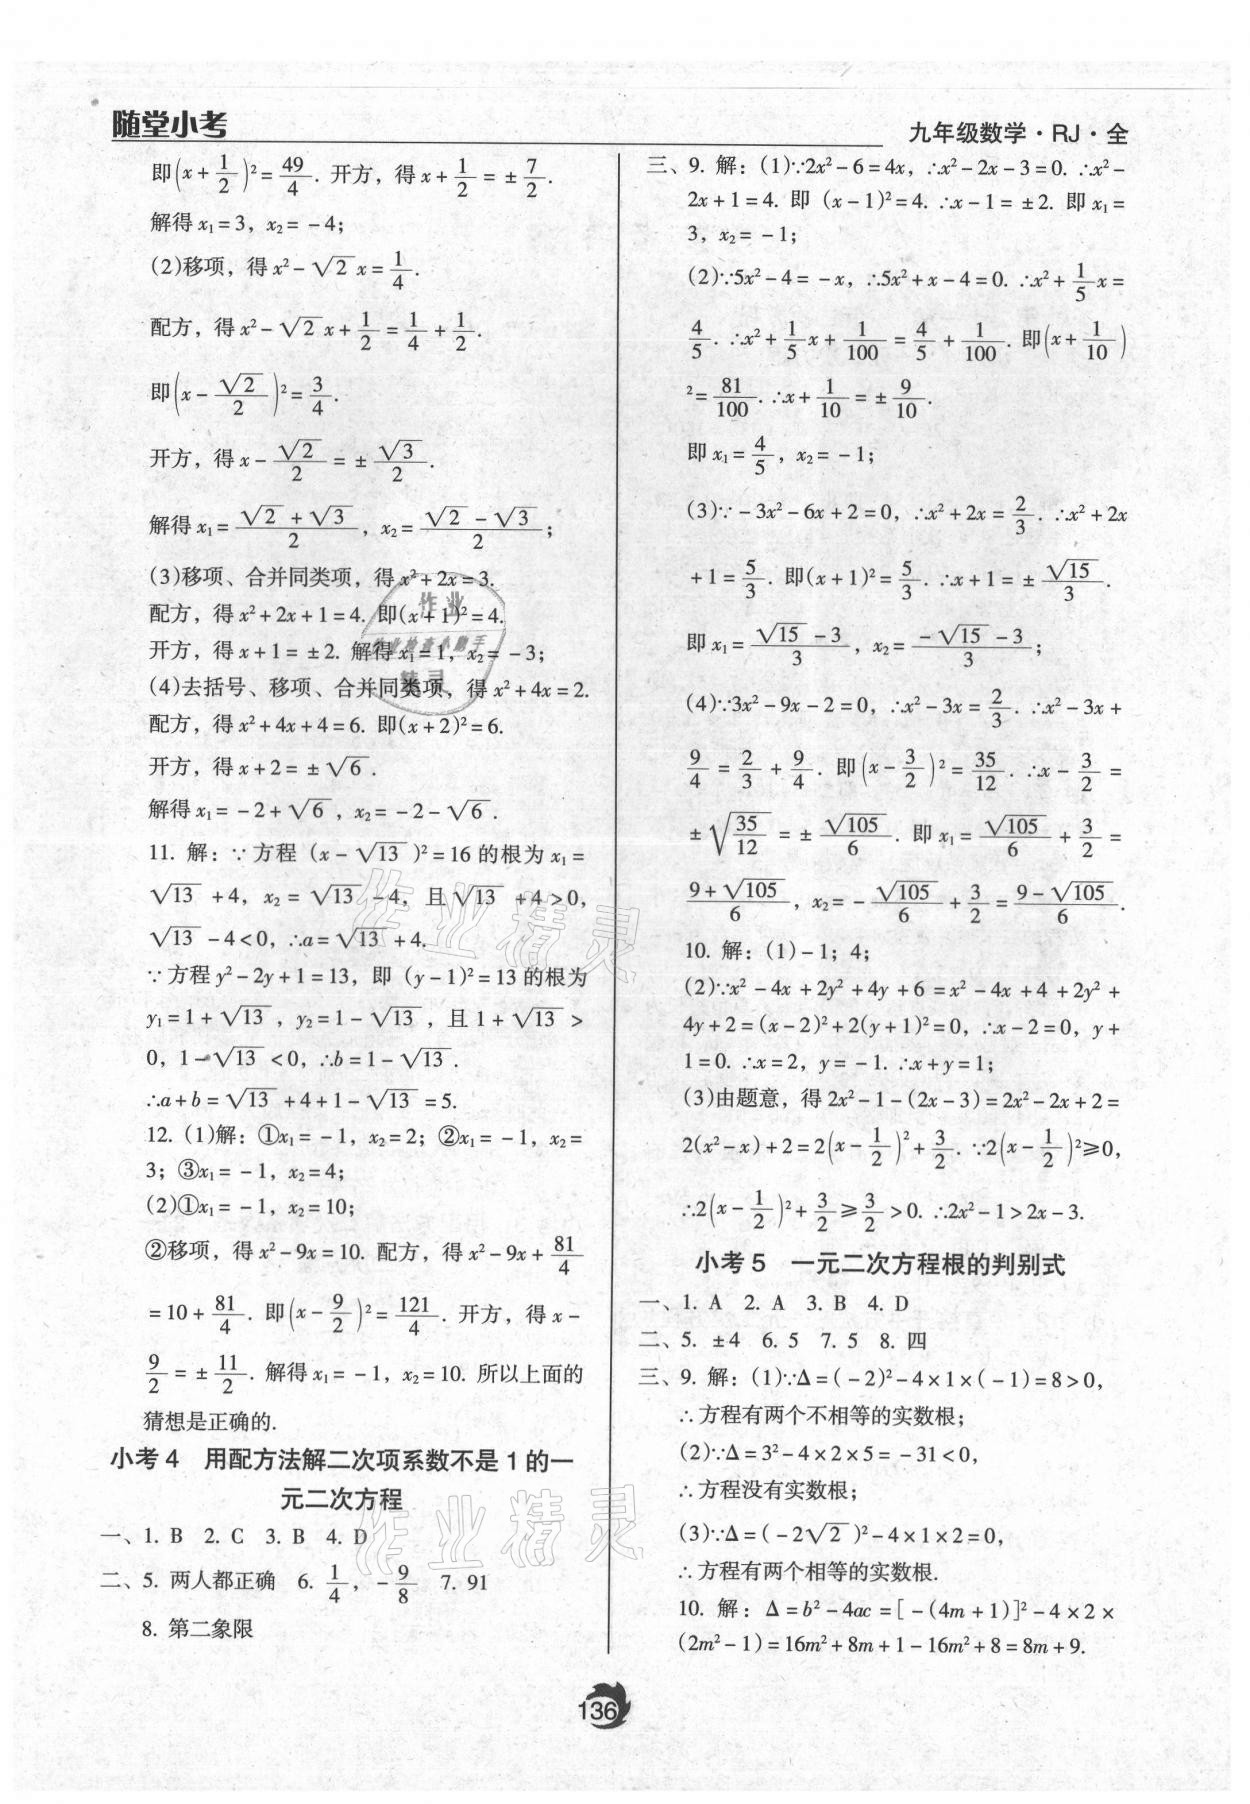 随堂小考
九年级数学·RJ·全
即(x+1/2)²=49/4. 开方，得x+1/2=±7/2.
解得x₁=3，x₂=-4；
(2)移项，得x²-√2x=1/4.
配方，得x²-√2x+1/2=1/4+1/2.
即(x-√2/2)²=3/4.
开方，得x-√2/2=±√3/2.
解得x₁=(√2+√3)/2，x₂=(√2-√3)/2；
(3)移项、合并同类项，得x²+2x=3.
配方，得x²+2x+1=4. 即(x+1)²=4.
开方，得x+1=±2. 解得x₁=1，x₂=-3；
(4)去括号、移项、合并同类项，得x²+4x=2.
配方，得x²+4x+4=6. 即(x+2)²=6.
开方，得x+2=±√6.
解得x₁=-2+√6，x₂=-2-√6.
11. 解：∵方程(x-√13)²=16的根为x₁=
√13+4，x₂=√13-4，且√13+4>0，
√13-4<0，∴a=√13+4.
∵方程y²-2y+1=13，即(y-1)²=13的根为
y₁=1+√13，y₂=1-√13，且1+√13>
0，1-√13<0，∴b=1-√13.
∴a+b=√13+4+1-√13=5.
12. (1)解：①x₁=-1，x₂=2；②x₁=-1，x₂=
3；③x₁=-1，x₂=4；
(2)①x₁=-1，x₂=10；
②移项，得x²-9x=10. 配方，得x²-9x+81/4
=10+81/4. 即(x-9/2)²=121/4. 开方，得x-
9/2=±11/2. 解得x₁=-1，x₂=10. 所以上面的
猜想是正确的.
小考4 用配方法解二次项系数不是1的一
元二次方程
一、1. B 2. C 3. B 4. D
二、5. 两人都正确 6. 1/4，-9/8 7. 91
8. 第二象限
三、9. 解：(1)∵2x²-6=4x，∴x²-2x-3=0. ∴x²-
2x+1=4. 即(x-1)²=4. ∴x-1=±2. 即x₁=
3，x₂=-1；
(2)∵5x²-4=-x，∴5x²+x-4=0. ∴x²+1/5x=
4/5. ∴x²+1/5x+1/100=4/5+1/100. 即(x+1/10)
²=81/100. ∴x+1/10=±9/10.
即x₁=4/5，x₂=-1；
(3)∵-3x²-6x+2=0，∴x²+2x=2/3. ∴x²+2x
+1=5/3. 即(x+1)²=5/3. ∴x+1=±√15/3.
即x₁=(√15-3)/3，x₂=(-√15-3)/3；
(4)∵3x²-9x-2=0，∴x²-3x=2/3. ∴x²-3x+
9/4=2/3+9/4. 即(x-3/2)²=35/12. ∴x-3/2=
±√(35/12)=±√105/6. 即x₁=√105/6+3/2=
(9+√105)/6，x₂=-√105/6+3/2=(9-√105)/6.
10. 解：(1)-1；4；
(2)∵x²-4x+2y²+4y+6=x²-4x+4+2y²+
4y+2=(x-2)²+2(y+1)²=0，∴x-2=0，y+
1=0. ∴x=2，y=-1. ∴x+y=1；
(3)由题意，得2x²-1-(2x-3)=2x²-2x+2=
2(x²-x)+2=2(x-1/2)²+3/2. ∵2(x-1/2)²≥0，
∴2(x-1/2)²+3/2≥3/2>0. ∴2x²-1>2x-3.
小考5 一元二次方程根的判别式
一、1. A 2. A 3. B 4. D
二、5. ±4 6. 5 7. 5 8. 四
三、9. 解：(1)∵Δ=(-2)²-4×1×(-1)=8>0，
∴方程有两个不相等的实数根；
(2)∵Δ=3²-4×2×5=-31<0，
∴方程没有实数根；
(3)∵Δ=(-2√2)²-4×1×2=0，
∴方程有两个相等的实数根.
10. 解：Δ=b²-4ac=[-(4m+1)]²-4×2×
(2m²-1)=16m²+8m+1-16m²+8=8m+9.
136
作业精灵
作业精灵
作业
作业检查小助手
精灵